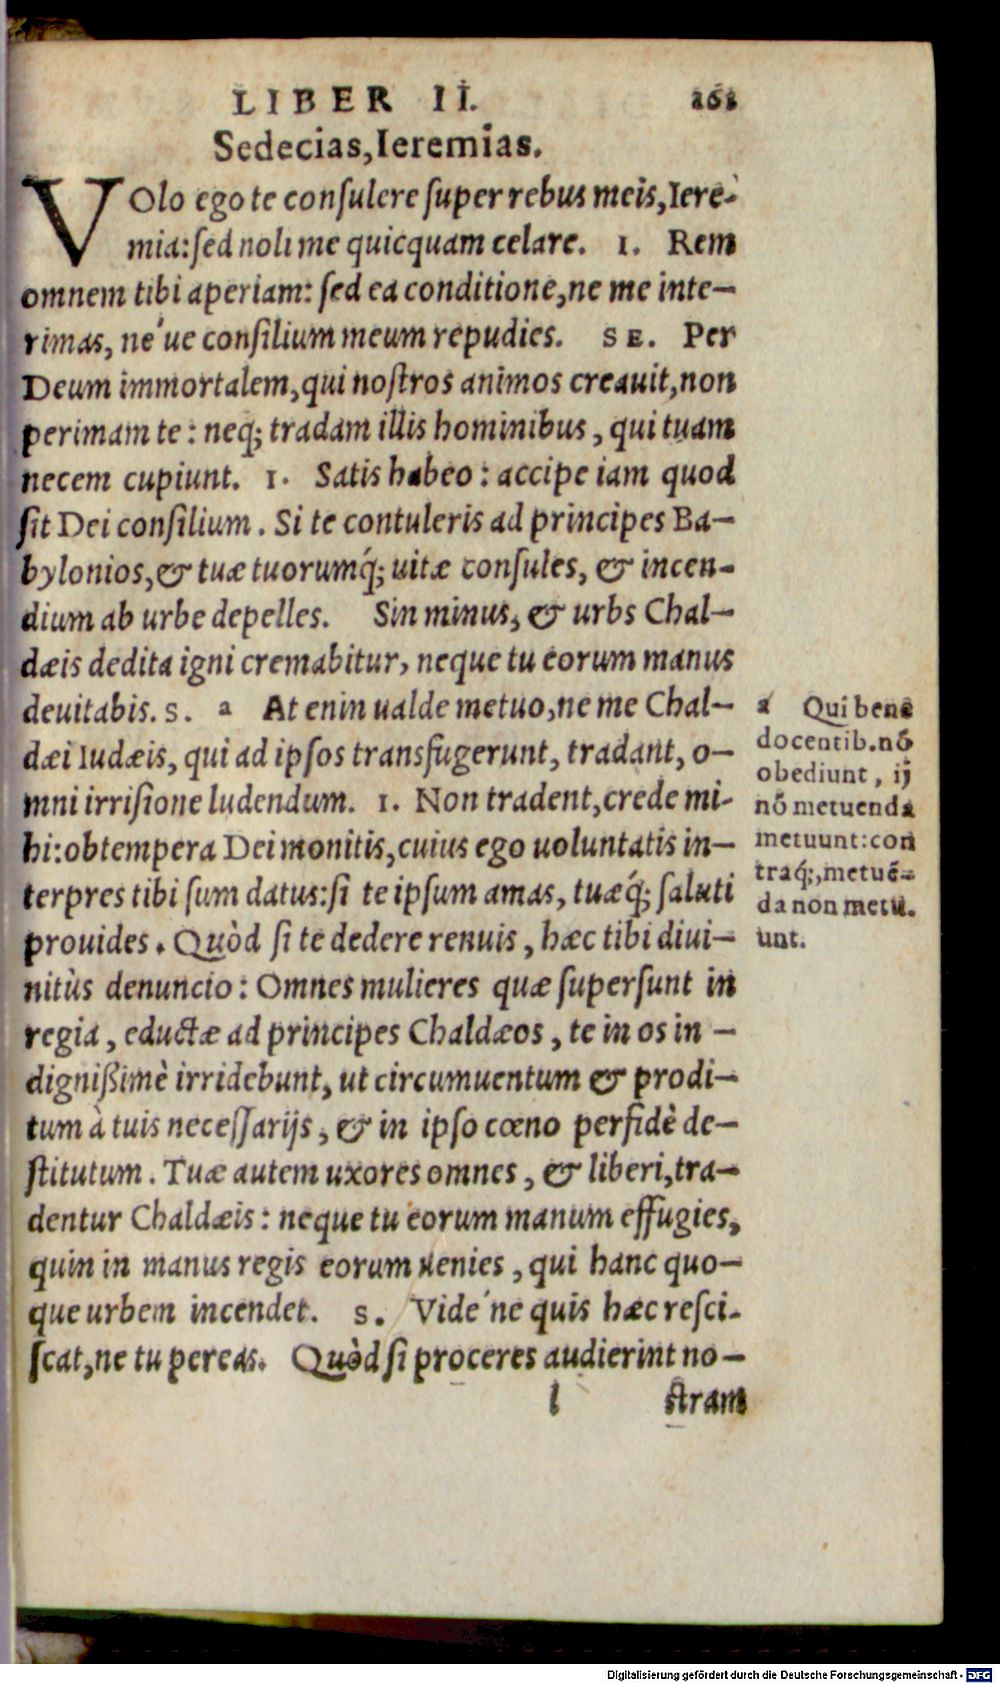 LIBER II. 161
Sedecias, Ieremias.
VOlo ego te consulere super rebus meis, Iere-
mia: sed noli me quicquam celare. I. Rem
omnem tibi aperiam: sed ea conditione, ne me inte-
rimas, ne'ue consilium meum repudies. SE. Per
Deum immortalem, qui nostros animos creauit, non
perimam te: neq; tradam illis hominibus, qui tuam
necem cupiunt. I. Satis habeo: accipe iam quod
sit Dei consilium. Si te contuleris ad principes Ba-
bylonios, & tuæ tuorumq́; uitæ consules, & incen-
dium ab urbe depelles. Sin minus, & urbs Chal-
dæis dedita igni cremabitur, neque tu eorum manus
deuitabis. S. a At enin ualde metuo, ne me Chal-
dæi Iudæis, qui ad ipsos transfugerunt, tradant, o-
mni irrisione ludendum. I. Non tradent, crede mi-
hi: obtempera Dei monitis, cuius ego uoluntatis in-
terpres tibi sum datus: si te ipsum amas, tuæq́; saluti
prouides. Quòd si te dedere renuis, hæc tibi diui-
nitùs denuncio: Omnes mulieres quæ supersunt in
regia, eductæ ad principes Chaldæos, te in os in-
dignißimè irridebunt, ut circumuentum & prodi-
tum à tuis necessarijs, & in ipso cœno perfidè de-
stitutum. Tuæ autem uxores omnes, & liberi, tra-
dentur Chaldæis: neque tu eorum manum effugies,
quin in manus regis eorum uenies, qui hanc quo-
que urbem incendet. S. Vide'ne quis hæc resci-
scat, ne tu pereas. Quòd si proceres audierint no-
l stram
a Qui benè
docentib. nō
obediunt, ij
nō metuenda
metuunt: con
traq́;, metuē-
da non metu.
unt.
Digitalisierung gefördert durch die Deutsche Forschungsgemeinschaft - DFG